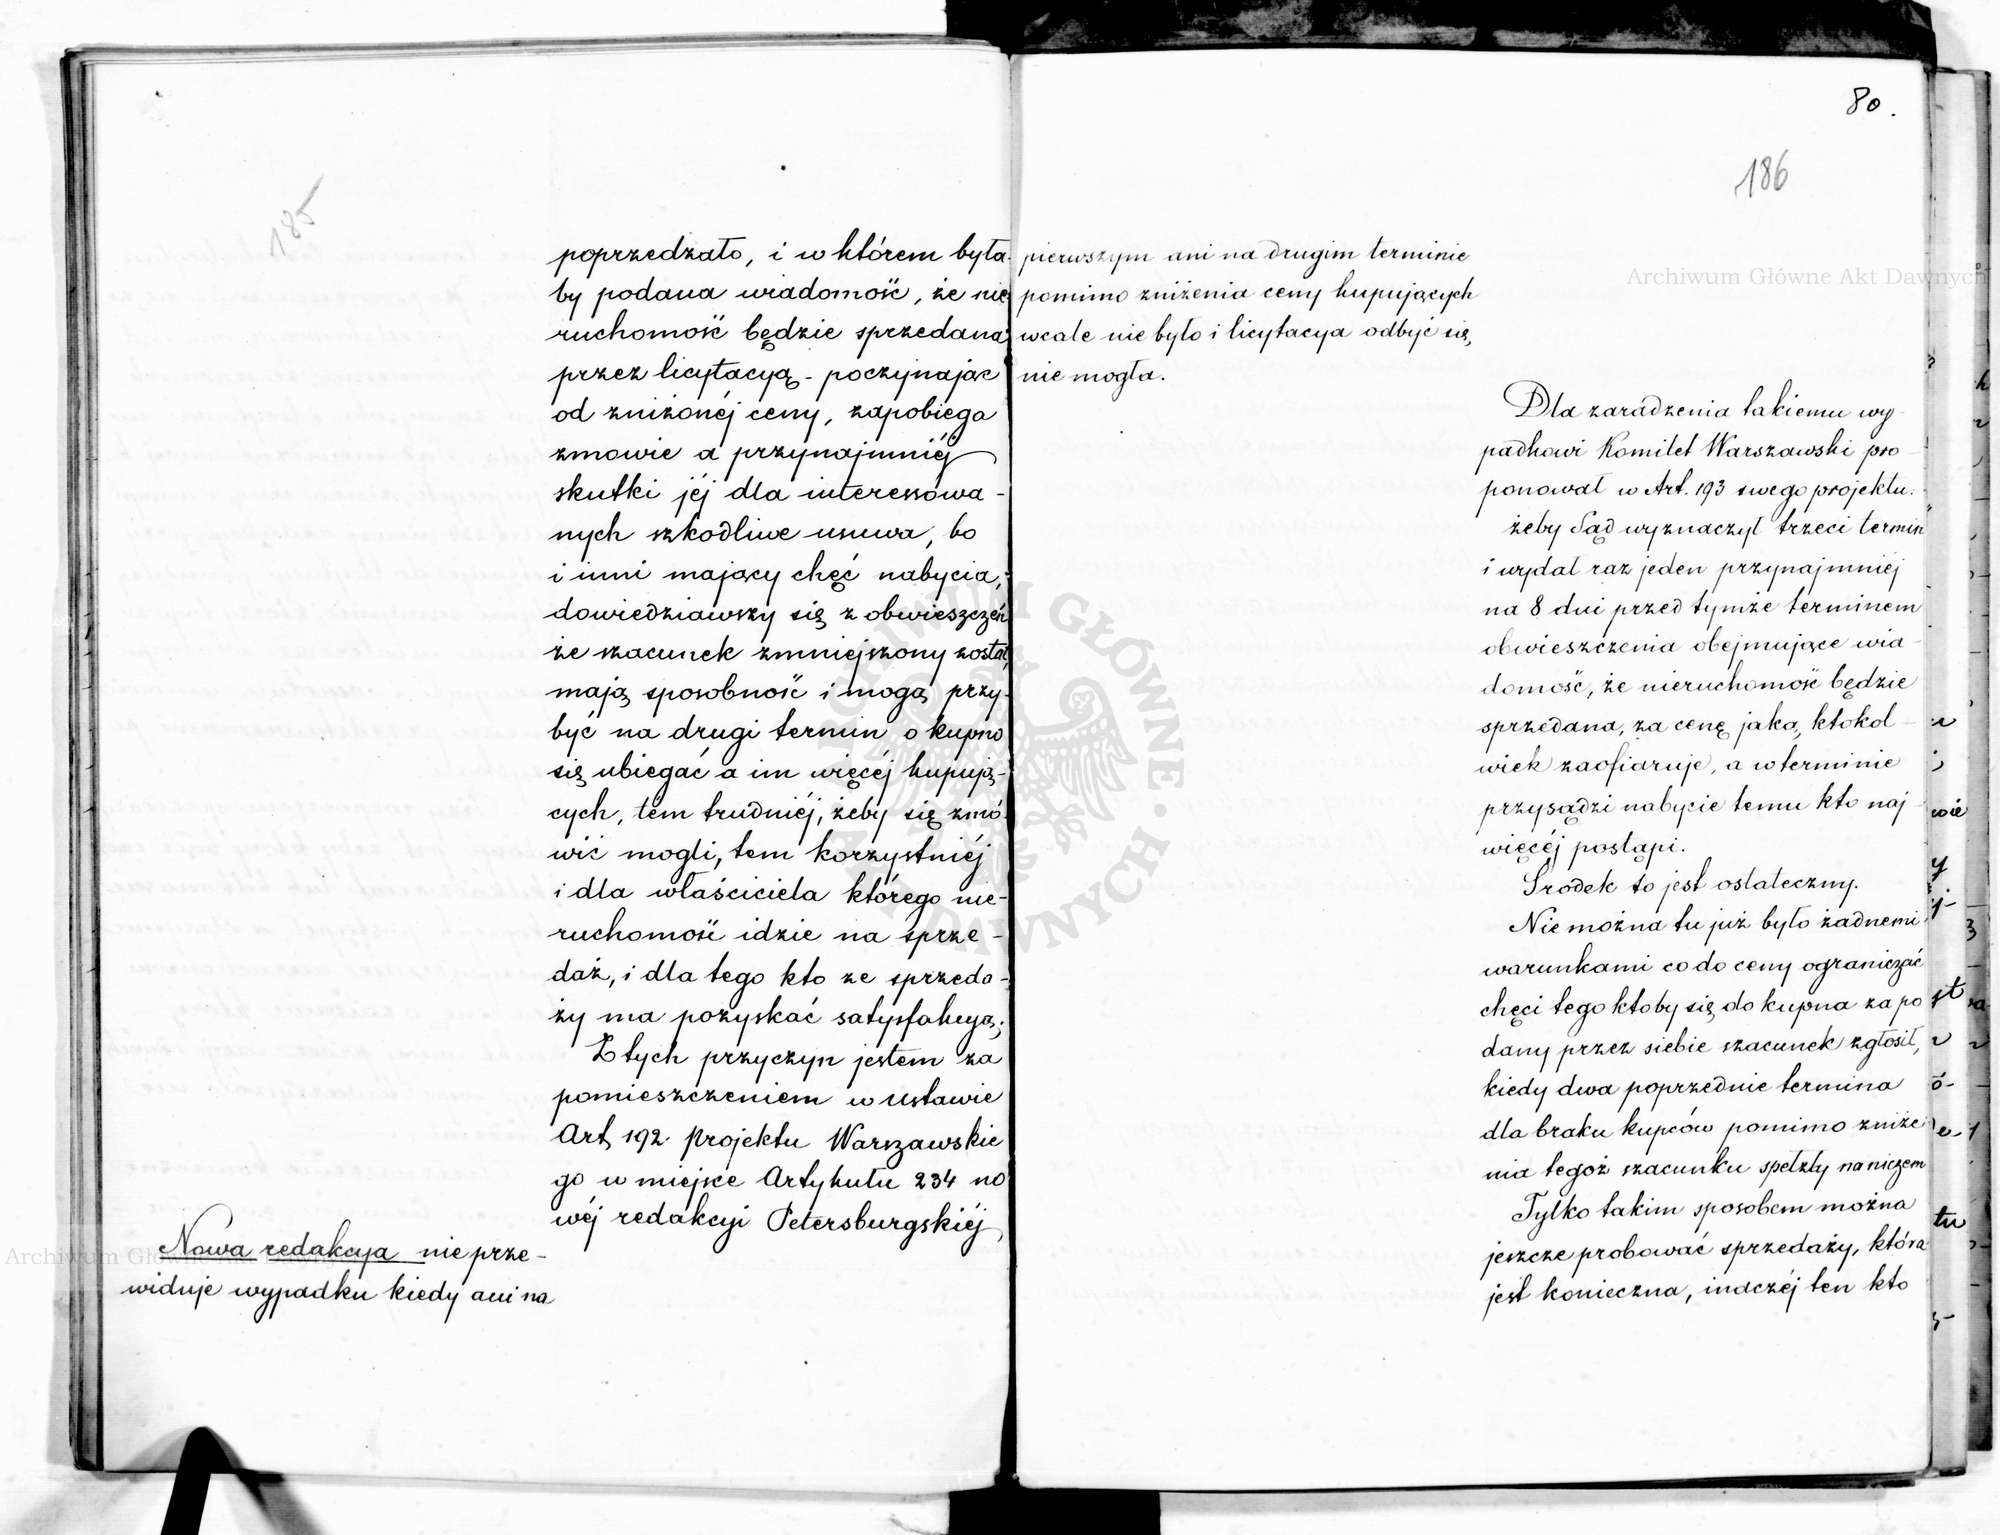 185
poprzedzało, i w którem była
by podana wiadomość, że nie
ruchomość będzie sprzedana
przez licytacyą - poczynając
od zniżonéj ceny, zapobiega
zmowie a przynajmniéj
skutki jéj dla interessowa -
nych szkodliwe usuwa, bo
i inni mający chęć nabycia,
dowiedziawszy się z obwieszczeń
że szacunek zmniejszony został,
mają sposobność i mogą przy-
być na drugi termin o kupno
się ubiegać a im więcéj kupują-
cych, tem trudniéj, żeby się zmó-
wić mogli, tem korzystniéj
i dla właściciela którego nie-
ruchomość idzie na sprze -
daż, i dla tego kto ze sprzeda-
ży ma pozyskać satysfakcyą.
Z tych przyczyn jestem za
pomieszczeniem w ustawie
Art, 192. projektu Warszawskie
go w miejsce Artykułu 234 no
wéj redakcyi Petersburgskiéj
Nowa redakcya nie prze-
widuje wypadku kiedy ani na
80.
186
pierwszym ani na drugim terminie
pomimo zniżenia ceny kupujących
wcale nie było i licytacya odbyć się,
nie mogła.
Dla zaradzenia takiemu wy-
padkowi Komitet Warszawski pro -
ponował w Art. 193 swego projektu:
żeby Sąd wyznaczył trzeci termin
i wydał raz jeden przynajmniéj
na 8 dni przed tymże terminem
obwieszczenia obejmujące wia -
domość, że nieruchomość będzie
sprzedana, za cenę jaką, ktokol -
wiek zaofiaruje, a w terminie
przysądzi nabycie temu kto naj -
więcéj postąpi.
Środek to jest ostateczny.
Nie można tu już było żadnemi
warunkami co do ceny ograniczać
chęci tego ktoby się do kupna za po
dany przez siebie szacunek zgłosił,
kiedy dwa poprzednie termina
dla braku kupców pomimo zniże
nia tegoż szacunku spełzły na niczem
Tylko takim sposobem można
jeszcze probować sprzedaży, która
jest konieczna, inaczéj ten kto
Archiwum Główne Akt Dawnych
Archiwum Główne Akt Dawnych
ARCHIWUM GŁÓWNE · AKT DAWNYCH ·